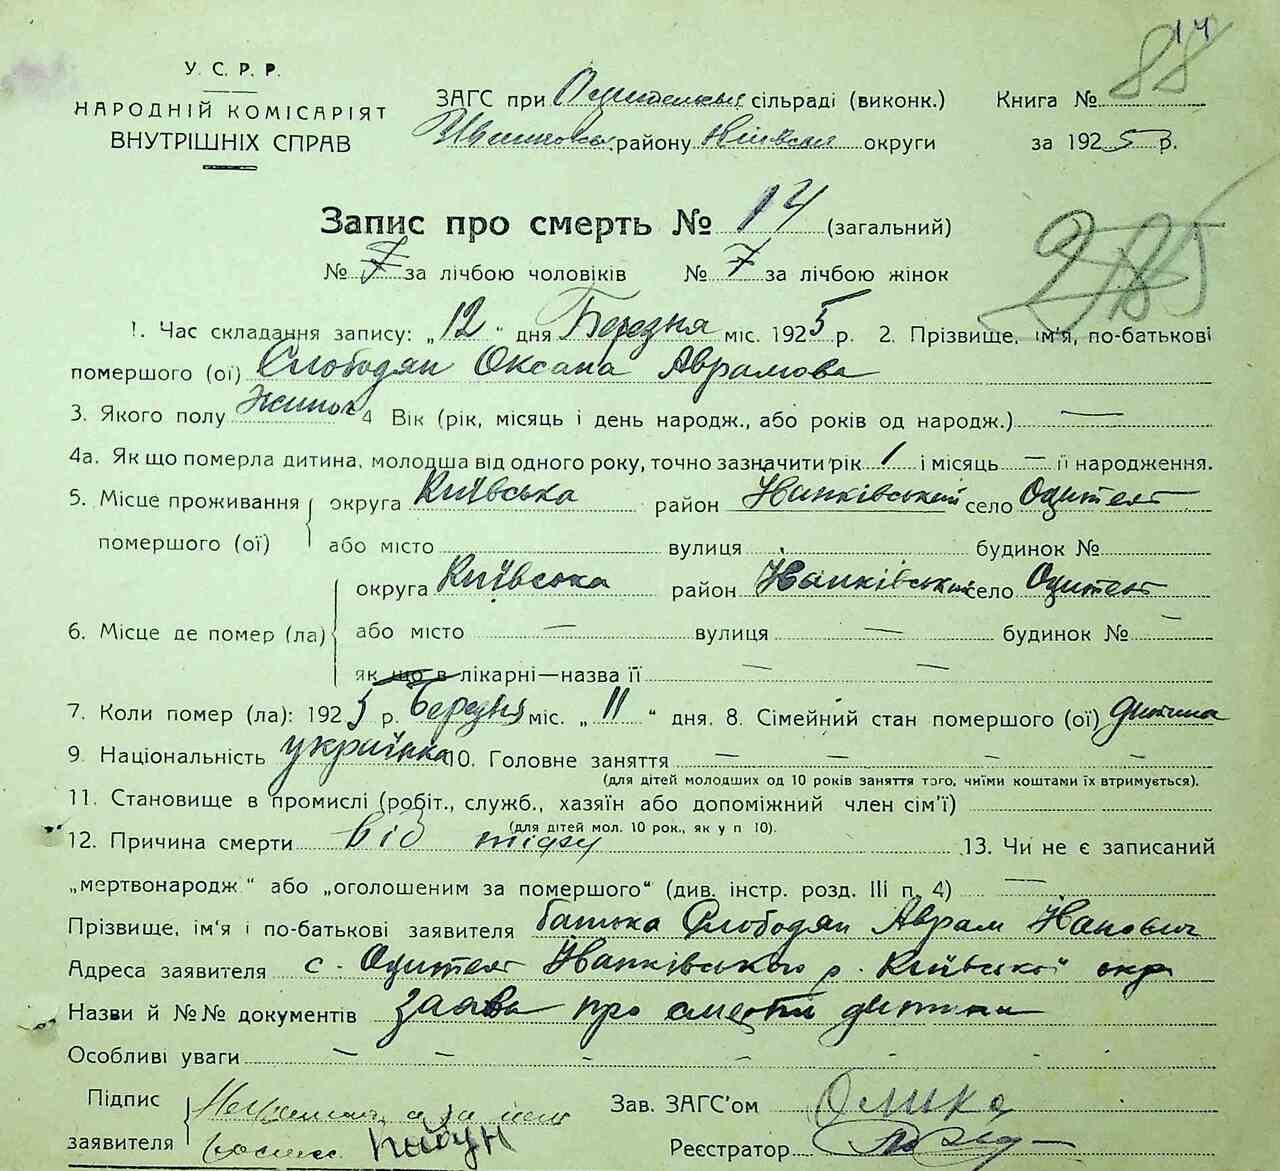 14
88
У. С. Р. Р.
НАРОДНІЙ КОМІСАРІЯТ
ВНУТРІШНІХ СПРАВ
ЗАГС при сільраді (виконк.) Книга №
району округи за 1925 р.
285
Запис про смерть № 14 (загальний)
№ 7 за лічбою чоловіків № 7 за лічбою жінок
1. Час складання запису: „12" дня Березня міс. 1925 р. 2. Прізвище, ім'я, по-батькові
помершого (ої) Слободян Оксана Аврамова
3. Якого полу 4 Вік (рік, місяць і день народж., або років од народж.) —
4а. Як що померла дитина, молодша від одного року, точно зазначити рік 1 і місяць — її народження.
5. Місце проживання округа Київська район Іванківський село Одителі
помершого (ої) або місто вулиця будинок №
округа Київська район Іванківський село Одителі
6. Місце де помер (ла) або місто — вулиця — будинок № —
як що в лікарні—назва її — —
7. Коли помер (ла): 1925 р. Березня міс. „11" дня. 8. Сімейний стан помершого (ої) дитина
9. Національність українка 10. Головне заняття — — — —
(для дітей молодших од 10 років заняття того, чиїми коштами їх втримується).
11. Становище в промислі (робіт., служб., хазяїн або допоміжний член сім'ї)
(для дітей мол. 10 рок., як у п 10).
12. Причина смерти від 13. Чи не є записаний
„мертвонародж." або „оголошеним за помершого" (див. інстр. розд. III п. 4) —
Прізвище, ім'я і по-батькові заявителя батька Слободян Аврам Іванович
Адреса заявителя с. Одителі Іванківського р. Київської окр
Назви й №№ документів заява про смерть дитини
Особливі уваги — — — — — — —
Підпис Зав. ЗАГС'ом
заявителя Реєстратор